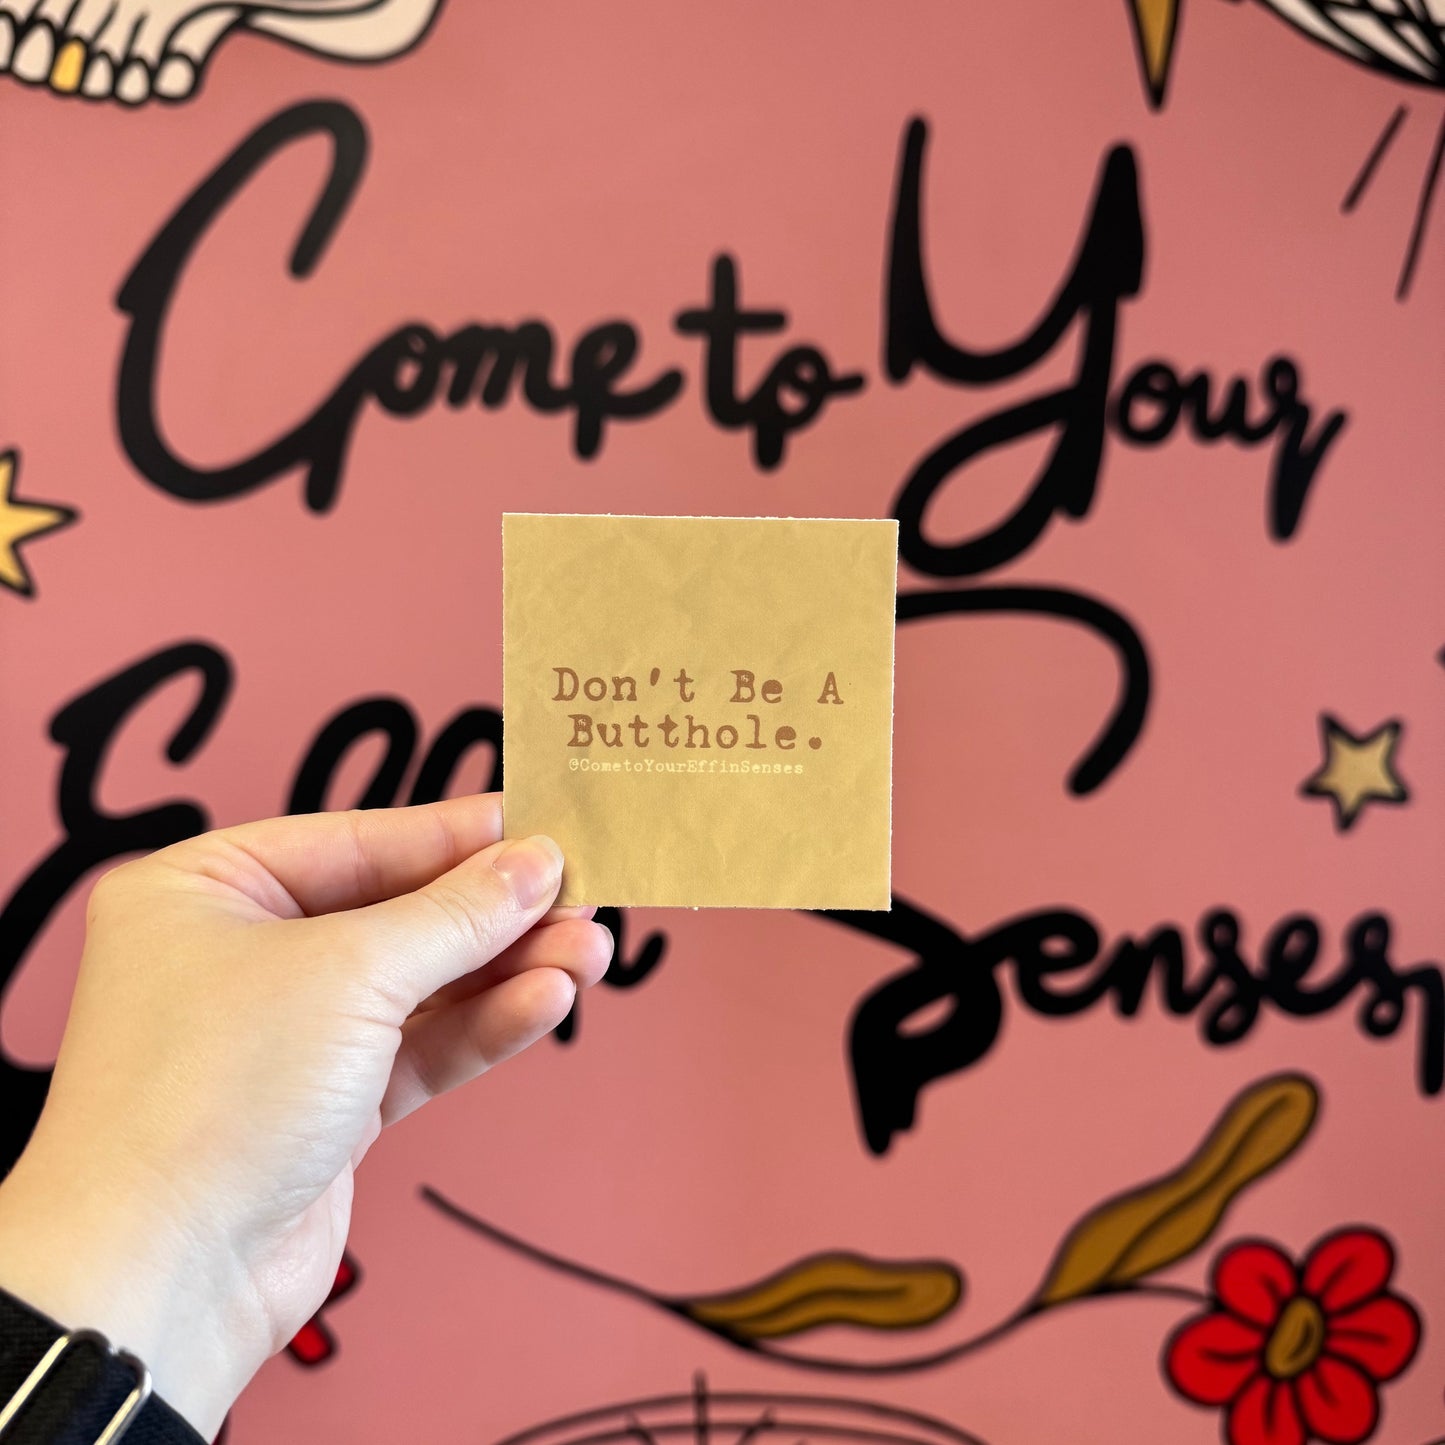 Come to Your
Effin Senses
Don't Be A
Butthole.
@CometoYourEffinSenses